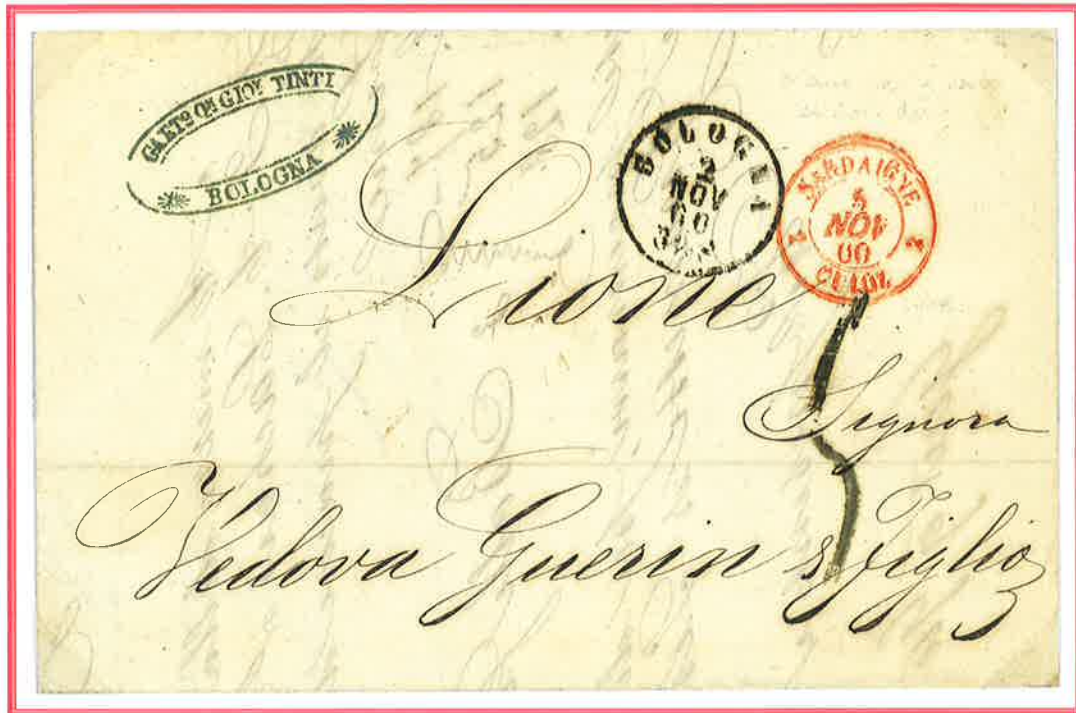 GAET.º Q.m GIO.i TINTI
BOLOGNA
BOLOGNA
2
NOV
60
SARDAIGNE
NOV
60
CULOZ
2 2
Lione
Signora
Vedova Guerin & Figlio